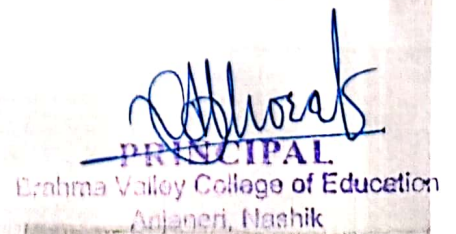 PRINCIPAL
Brahma Valley College of Education
Anjaneri, Nashik